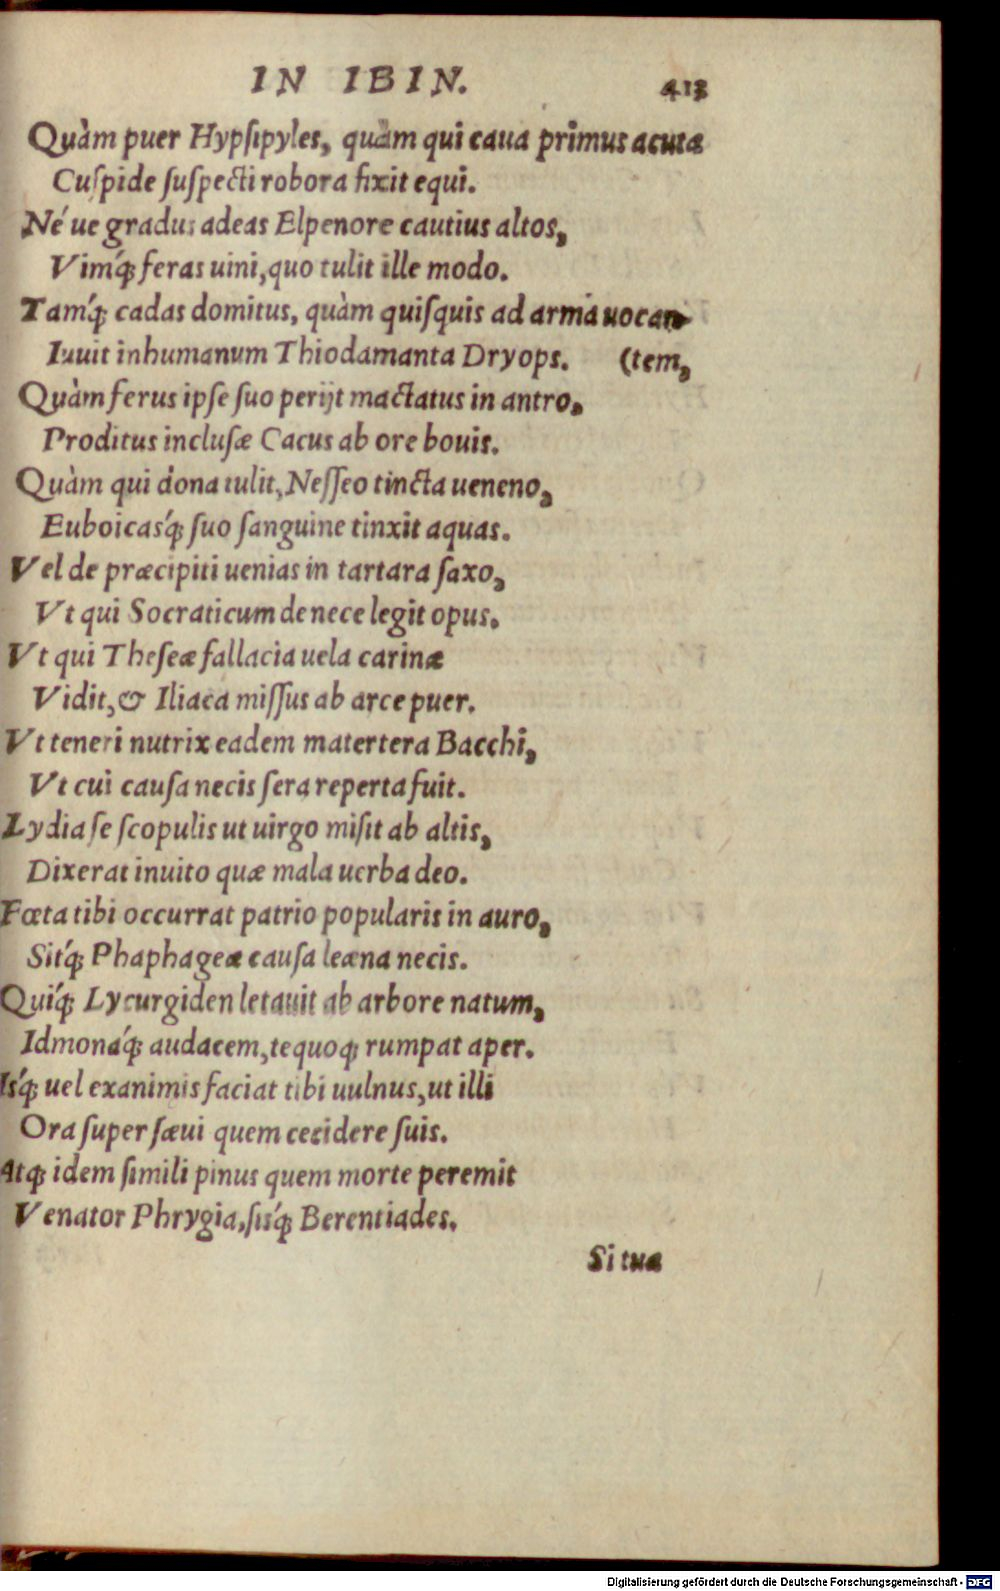 IN IBIN. 413
Quàm puer Hypſipyles, quàm qui caua primus acuta
Cuſpide ſuſpecti robora fixit equi.
Né ue gradus adeas Elpenore cautius altos,
Vimq́; feras uini, quo tulit ille modo.
Tamq́; cadas domitus, quàm quiſquis ad arma uocan-
Iuuit inhumanum Thiodamanta Dryops. (tem,
Quàm ferus ipſe ſuo perijt mactatus in antro,
Proditus incluſæ Cacus ab ore bouis.
Quàm qui dona tulit, Neſſeo tincta ueneno,
Euboicasq́; ſuo ſanguine tinxit aquas.
Vel de præcipiti uenias in tartara ſaxo,
Vt qui Socraticum de nece legit opus.
Vt qui Theſeæ fallacia uela carinæ
Vidit, & Iliaca miſſus ab arce puer.
Vt teneri nutrix eadem matertera Bacchi,
Vt cui cauſa necis ſera reperta fuit.
Lydia ſe ſcopulis ut uirgo miſit ab altis,
Dixerat inuito quæ mala uerba deo.
Fœta tibi occurrat patrio popularis in auro,
Sitq́; Phaphageæ cauſa leæna necis.
Quiq́; Lycurgiden letauit ab arbore natum,
Idmonáq́; audacem, te quoq; rumpat aper.
Isq́; uel exanimis faciat tibi uulnus, ut illi
Ora ſuper ſæui quem cecidere ſuis.
Atq; idem ſimili pinus quem morte peremit
Venator Phrygia, ſisq́; Berentiades.
Si tuæ
Digitalisierung gefördert durch die Deutsche Forschungsgemeinschaft - DFG